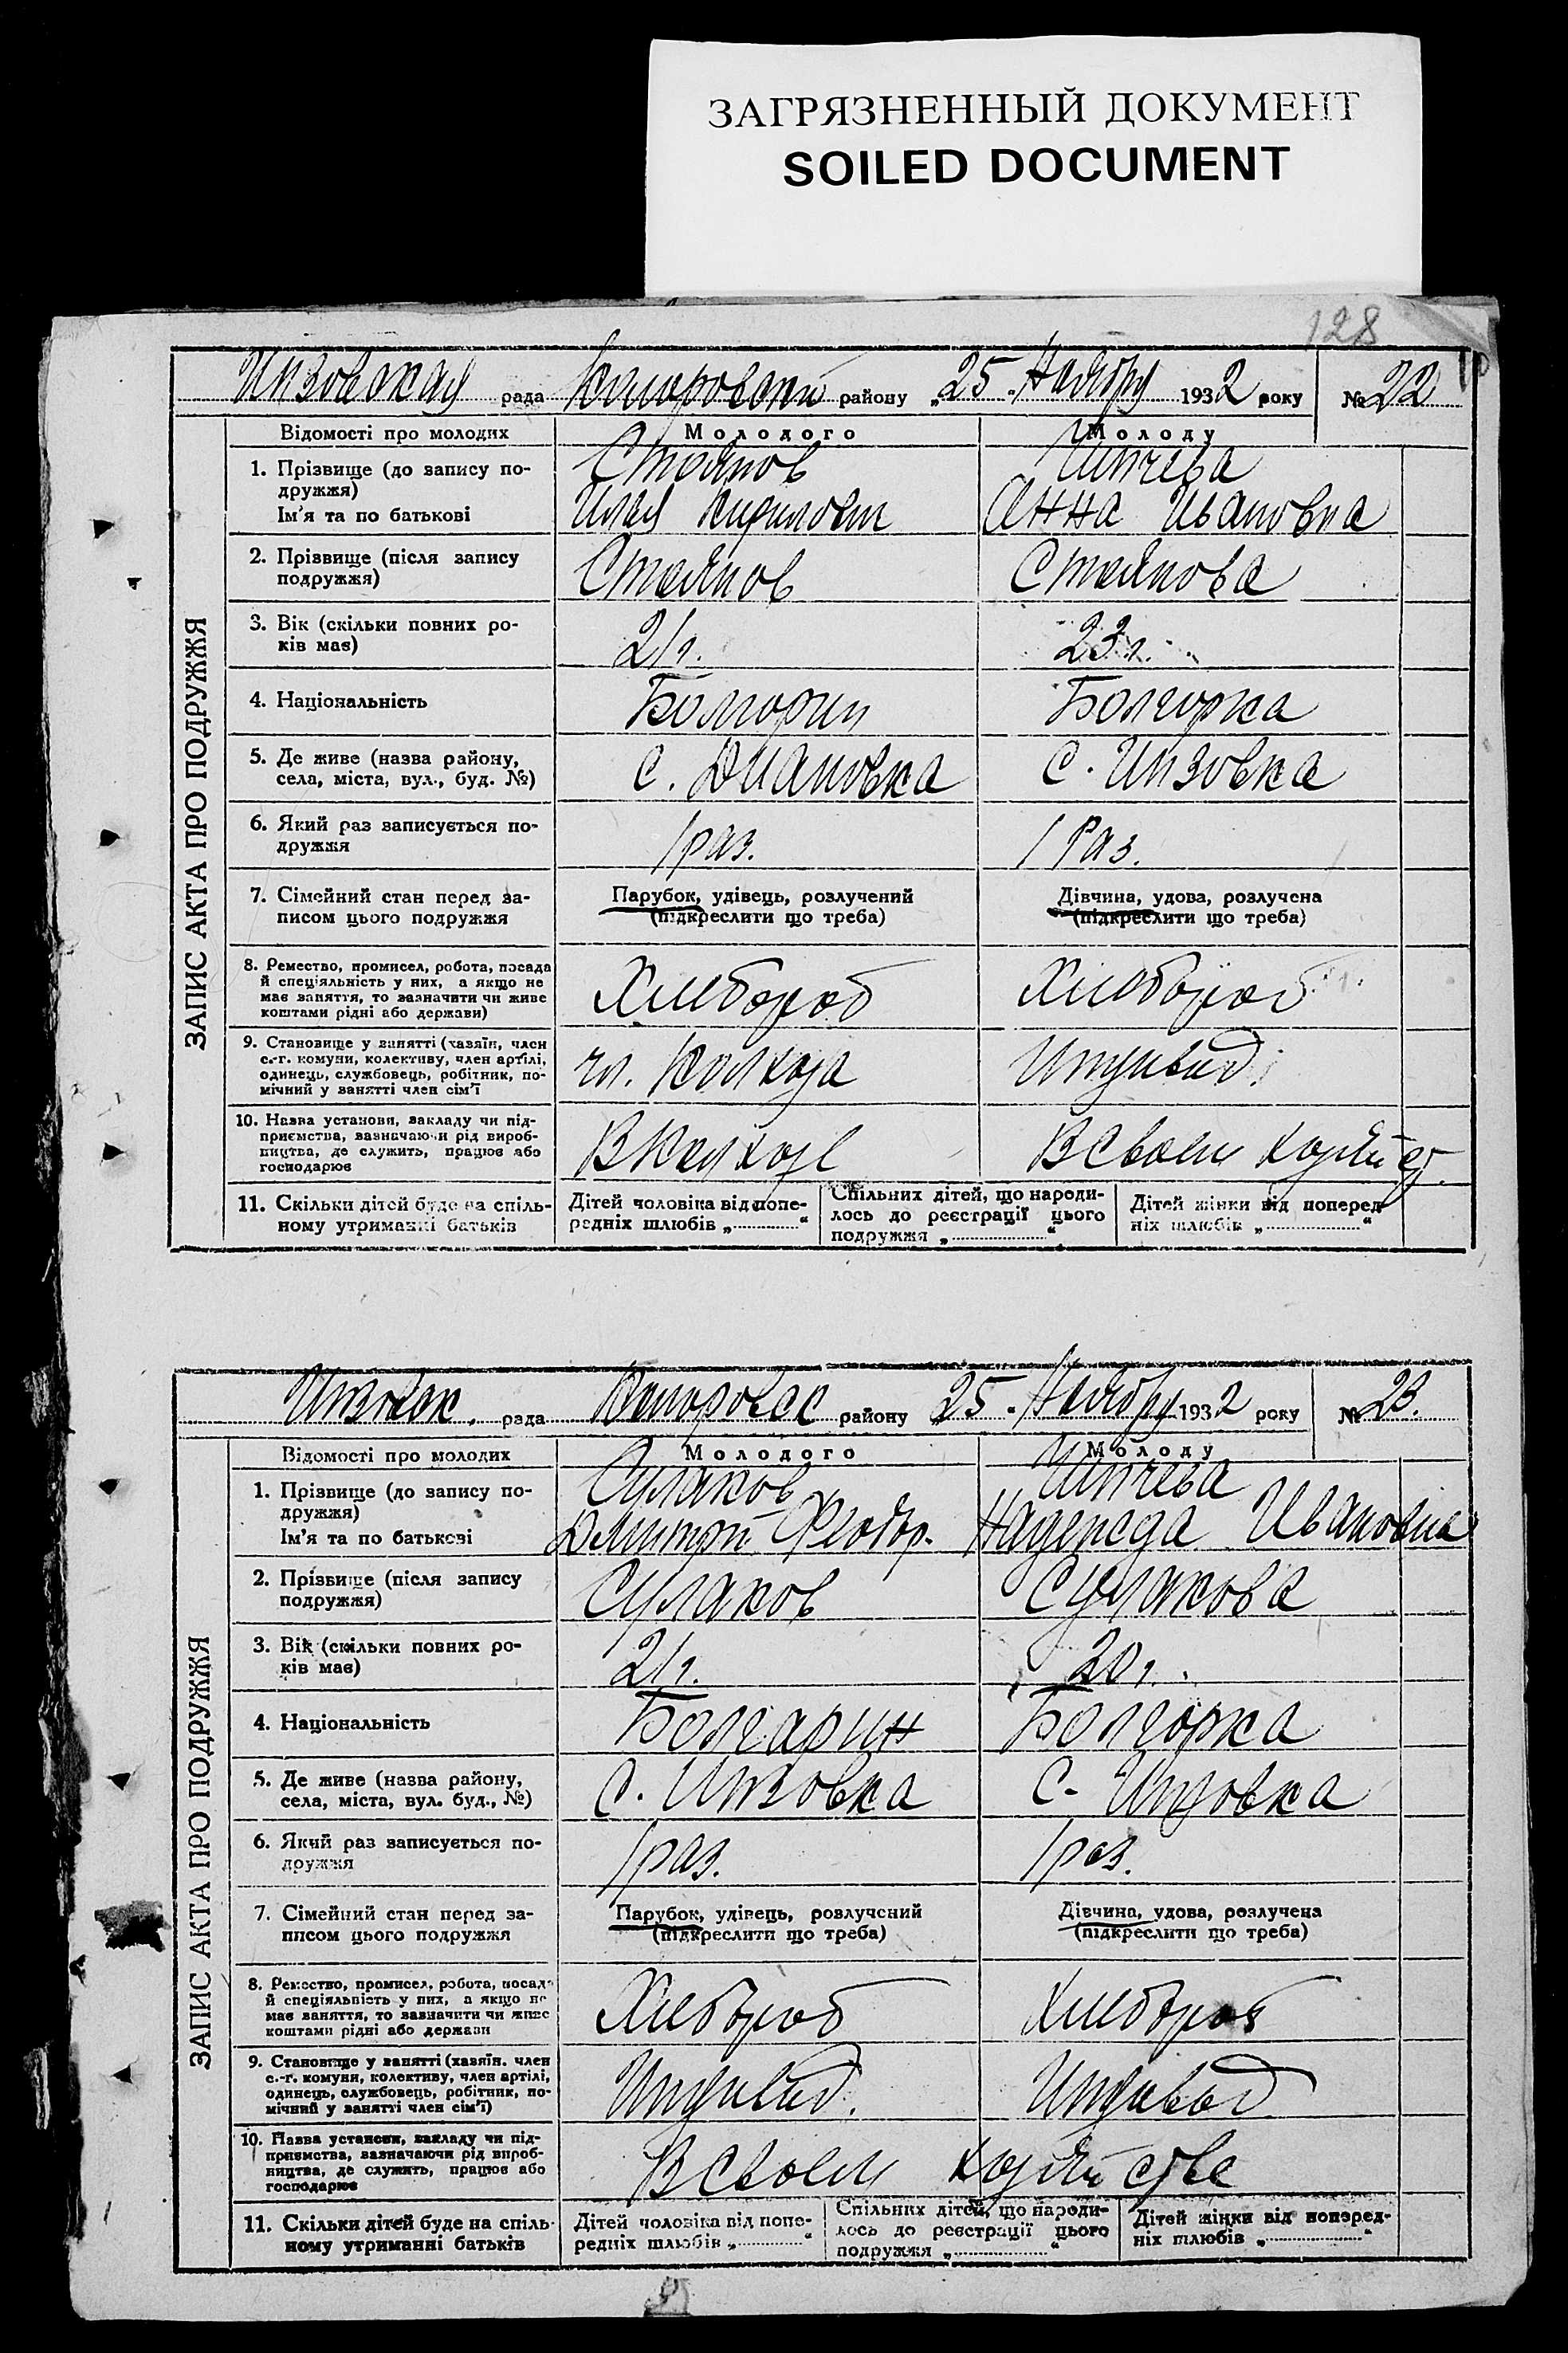 ЗАГРЯЗНЕННЫЙ ДОКУМЕНТ
SOILED DOCUMENT
128
Инзовская рада Коларовский району „25. Ноября 1932 року № 22
ЗАПИС АКТА ПРО ПОДРУЖЖЯ
Відомості про молодих Молодого Молоду
1. Прізвище (до запису по-
дружжя)
Ім'я та по батькові
Стоянов
Илья Кирилович
Анна Ивановна
2. Прізвище (після запису
подружжя)
Стоянов Стоянова
3. Вік (скільки повних ро-
ків має)
21 г. 23 г.
4. Національність Болгорин Болгорка
5. Де живе (назва району,
села, міста, вул., буд. №)
с. Диановка с. Инзовка
6. Який раз записується по-
дружжя
1 раз. 1 раз.
7. Сімейний стан перед за-
писом цього подружжя
Парубок, удівець, розлучений
(підкреслити що треба)
Дівчина, удова, розлучена
(підкреслити що треба)
8. Ремество, промисел, робота, посада
й спеціяльність у них, а якщо не
має заняття, то зазначити чи живе
коштами рідні або держави)
Хлебороб Хлебороб
9. Становище у занятті (хазяїн, член
с.-г. комуни, колективу, член артілі,
одинець, службовець, робітник, по-
мічний у занятті член сім'ї
чл. Колхоза Индивид.
10. Назва установи, закладу чи під-
приємства, зазначаючи рід вироб-
ництва, де служить, працює або
господарює
В Колхозе В своем хозяйст.
11. Скільки дітей буде на спіль-
ному утриманні батьків
Дітей чоловіка від попе-
редніх шлюбів „ “
Спільних дітей, що народи-
лось до реєстрації цього
подружжя „ “
Дітей жінки від поперед-
ніх шлюбів „ “
Инзовск. рада Коларовск району „25. Ноября 1932 року № 23.
ЗАПИС АКТА ПРО ПОДРУЖЖЯ
Відомості про молодих Молодого Молоду
1. Прізвище (до запису по-
дружжя)
Ім'я та по батькові
Сулаков
Дмитрий Феодор. Надежда Ивановна
2. Прізвище (після запису
подружжя)
Сулаков Сулакова
3. Вік (скільки повних ро-
ків має)
21 г. 20 г.
4. Національність Болгарин Болгорка
5. Де живе (назва району,
села, міста, вул. буд., №)
С. Инзовка С. Инзовка
6. Який раз записується по-
дружжя
1 раз. 1 раз.
7. Сімейний стан перед за-
писом цього подружжя
Парубок, удівець, розлучений
(підкреслити що треба)
Дівчина, удова, розлучена
(підкреслити що треба)
8. Ремество, промисел, робота, посада
й спеціяльність у них, а якщо не
має заняття, то зазначити чи живе
коштами рідні або держави
Хлебороб Хлебороб
9. Становище у занятті (хазяїн. член
с.-г. комуни, колективу, член артілі,
одинець, службовець, робітник, по-
мічний у занятті член сім'ї)
Индивид. Индивид
10. Назва установи, закладу чи під-
приємства, зазначаючи рід вироб-
ництва, де служить, працює або
господарює
В своем хозяйстве
11. Скільки дітей буде на спіль-
ному утриманні батьків
Дітей чоловіка від попе-
редніх шлюбів „ “
Спільних дітей, що народи-
лось до реєстрації цього
подружжя „ “
Дітей жінки від поперед-
ніх шлюбів „ “